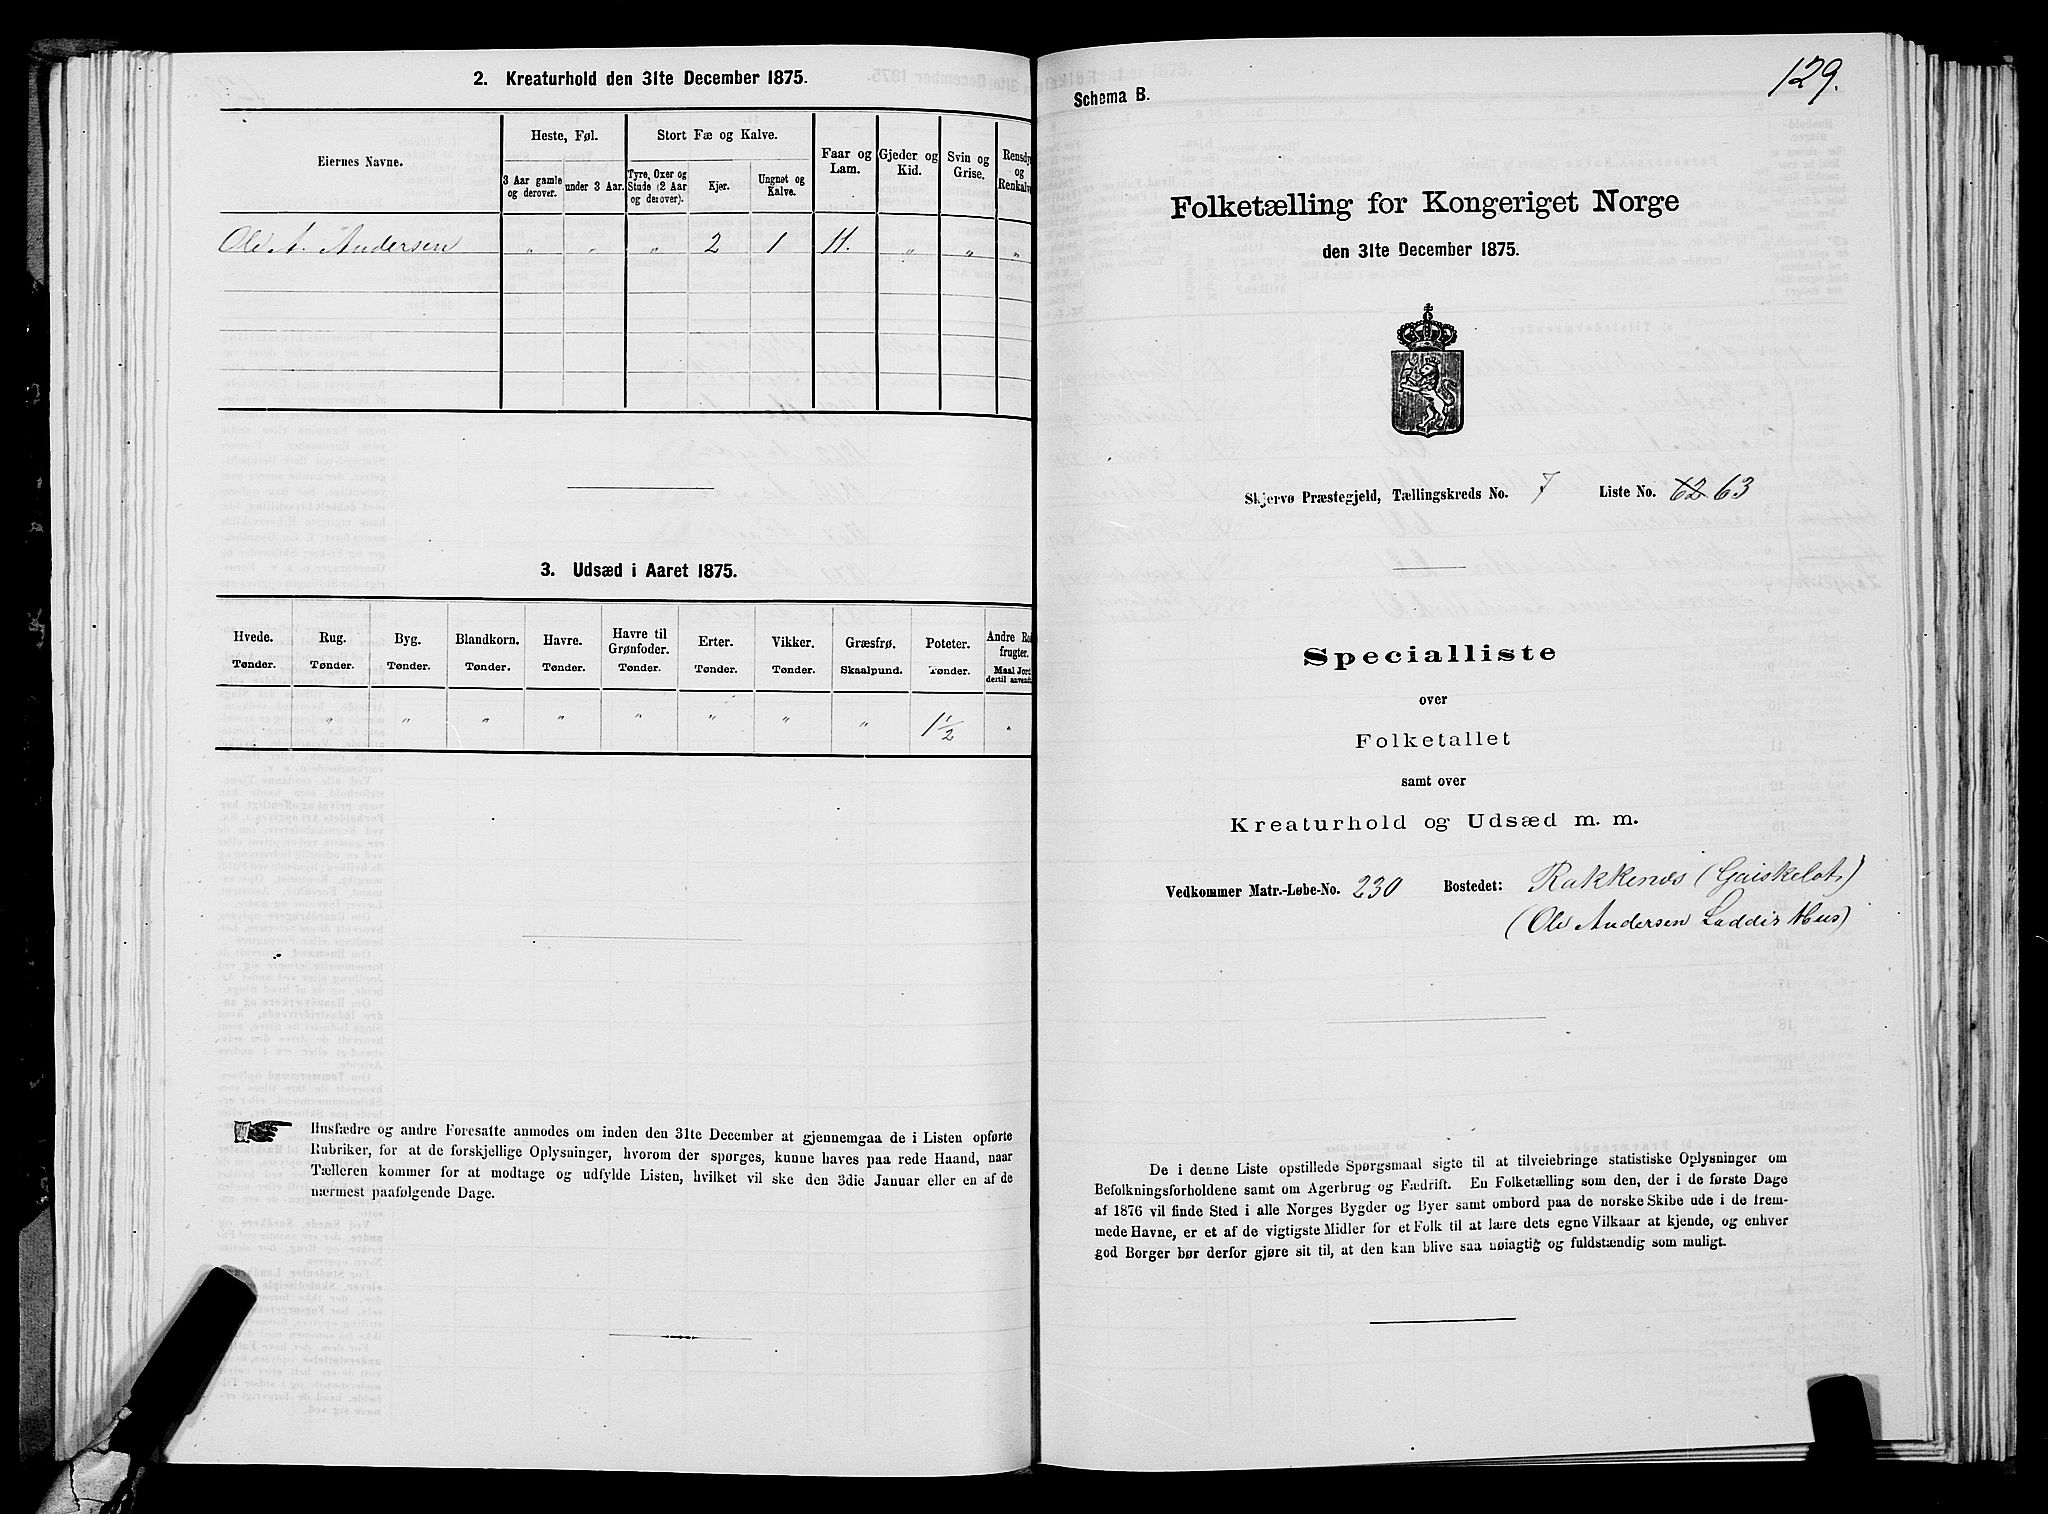 2. Kreaturhold den 31te December 1875.
Eiernes Navne.
Heste, Føl.
Stort Fæ og Kalve.
Faar og Lam.
Gjeder og Kid.
Svin og Grise.
Rensdy og Renkalve
3 Aar gamle og derover.
under 3 Aar.
Tyre, Oxer og Stude (2 Aar og derover).
Kjer.
Ungnøt og Kalve.
Ole A. Andersen " " " 2 1 11. " " "
3. Udsæd i Aaret 1875.
Hvede. Rug. Byg. Blandkorn. Havre. Havre til Grønfoder. Erter. Vikker. Græsfrø. Poteter. Andre Ro frugter.
Tønder. Tønder. Tønder. Tønder. Tønder. Tønder. Tønder. Tønder. Skaalpund. Tønder. Maal Jord dertil anvend.
" " " " " " " " 1 1/2 "
Husfædre og andre Foresatte anmodes om inden den 31te December at gjennemgaa de i Listen opførte
Rubriker, for at de forskjellige Oplysninger, hvorom der spørges, kunne haves paa rede Haand, naar
Tælleren kommer for at modtage og udfylde Listen, hvilket vil ske den 3die Januar eller en af de
nærmest paafølgende Dage.
129.
Schema B.
Folketælling for Kongeriget Norge
den 31te December 1875.
Skjervø Præstegjeld, Tællingskreds No. 7 Liste No. 62 63
Specialliste
over
Folketallet
samt over
Kreaturhold og Udsæd m. m.
Vedkommer Matr.-Løbe-No. 230 Bostedet: Rakkenæs (Gaiskelot,)
(Ole Andersen Laddis Hus)
De i denne Liste opstillede Spørgsmaal sigte til at tilveiebringe statistiske Oplysninger om
Befolkningsforholdene samt om Agerbrug og Fædrift. En Folketælling som den, der i de første Dage
af 1876 vil finde Sted i alle Norges Bygder og Byer samt ombord paa de norske Skibe ude i de frem-
mede Havne, er et af de vigtigste Midler for et Folk til at lære dets egne Vilkaar at kjende, og enhver
god Borger bør derfor gjøre sit til, at den kan blive saa nøiagtig og fuldstændig som muligt.